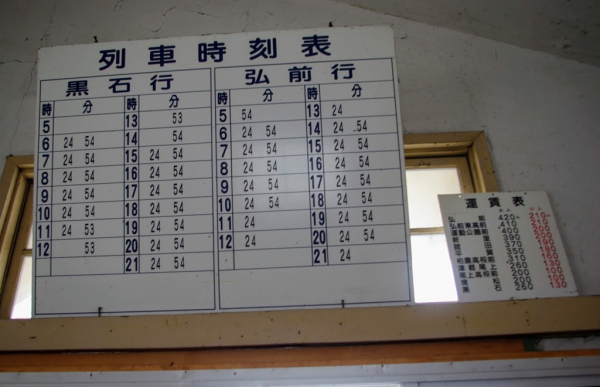 列車時刻表
黒石行
時 分 時 分
5 13 53
6 24 54 14 54
7 24 54 15 24 54
8 24 54 16 24 54
9 24 54 17 24 54
10 24 54 18 24 54
11 24 53 19 24 54
12 53 20 24 54
21 24 54
弘前行
時 分 時 分
5 54 13 24
6 24 54 14 24 54
7 24 54 15 24 54
8 24 54 16 24 54
9 24 54 17 24 54
10 24 54 18 24 54
11 24 19 24 54
12 24 20 24 54
21 24
運賃表
弘前 420 210
410 210
400 200
390 200
370 190
350 180
310 160
260 130
200 100
200 100
黒石 260 130